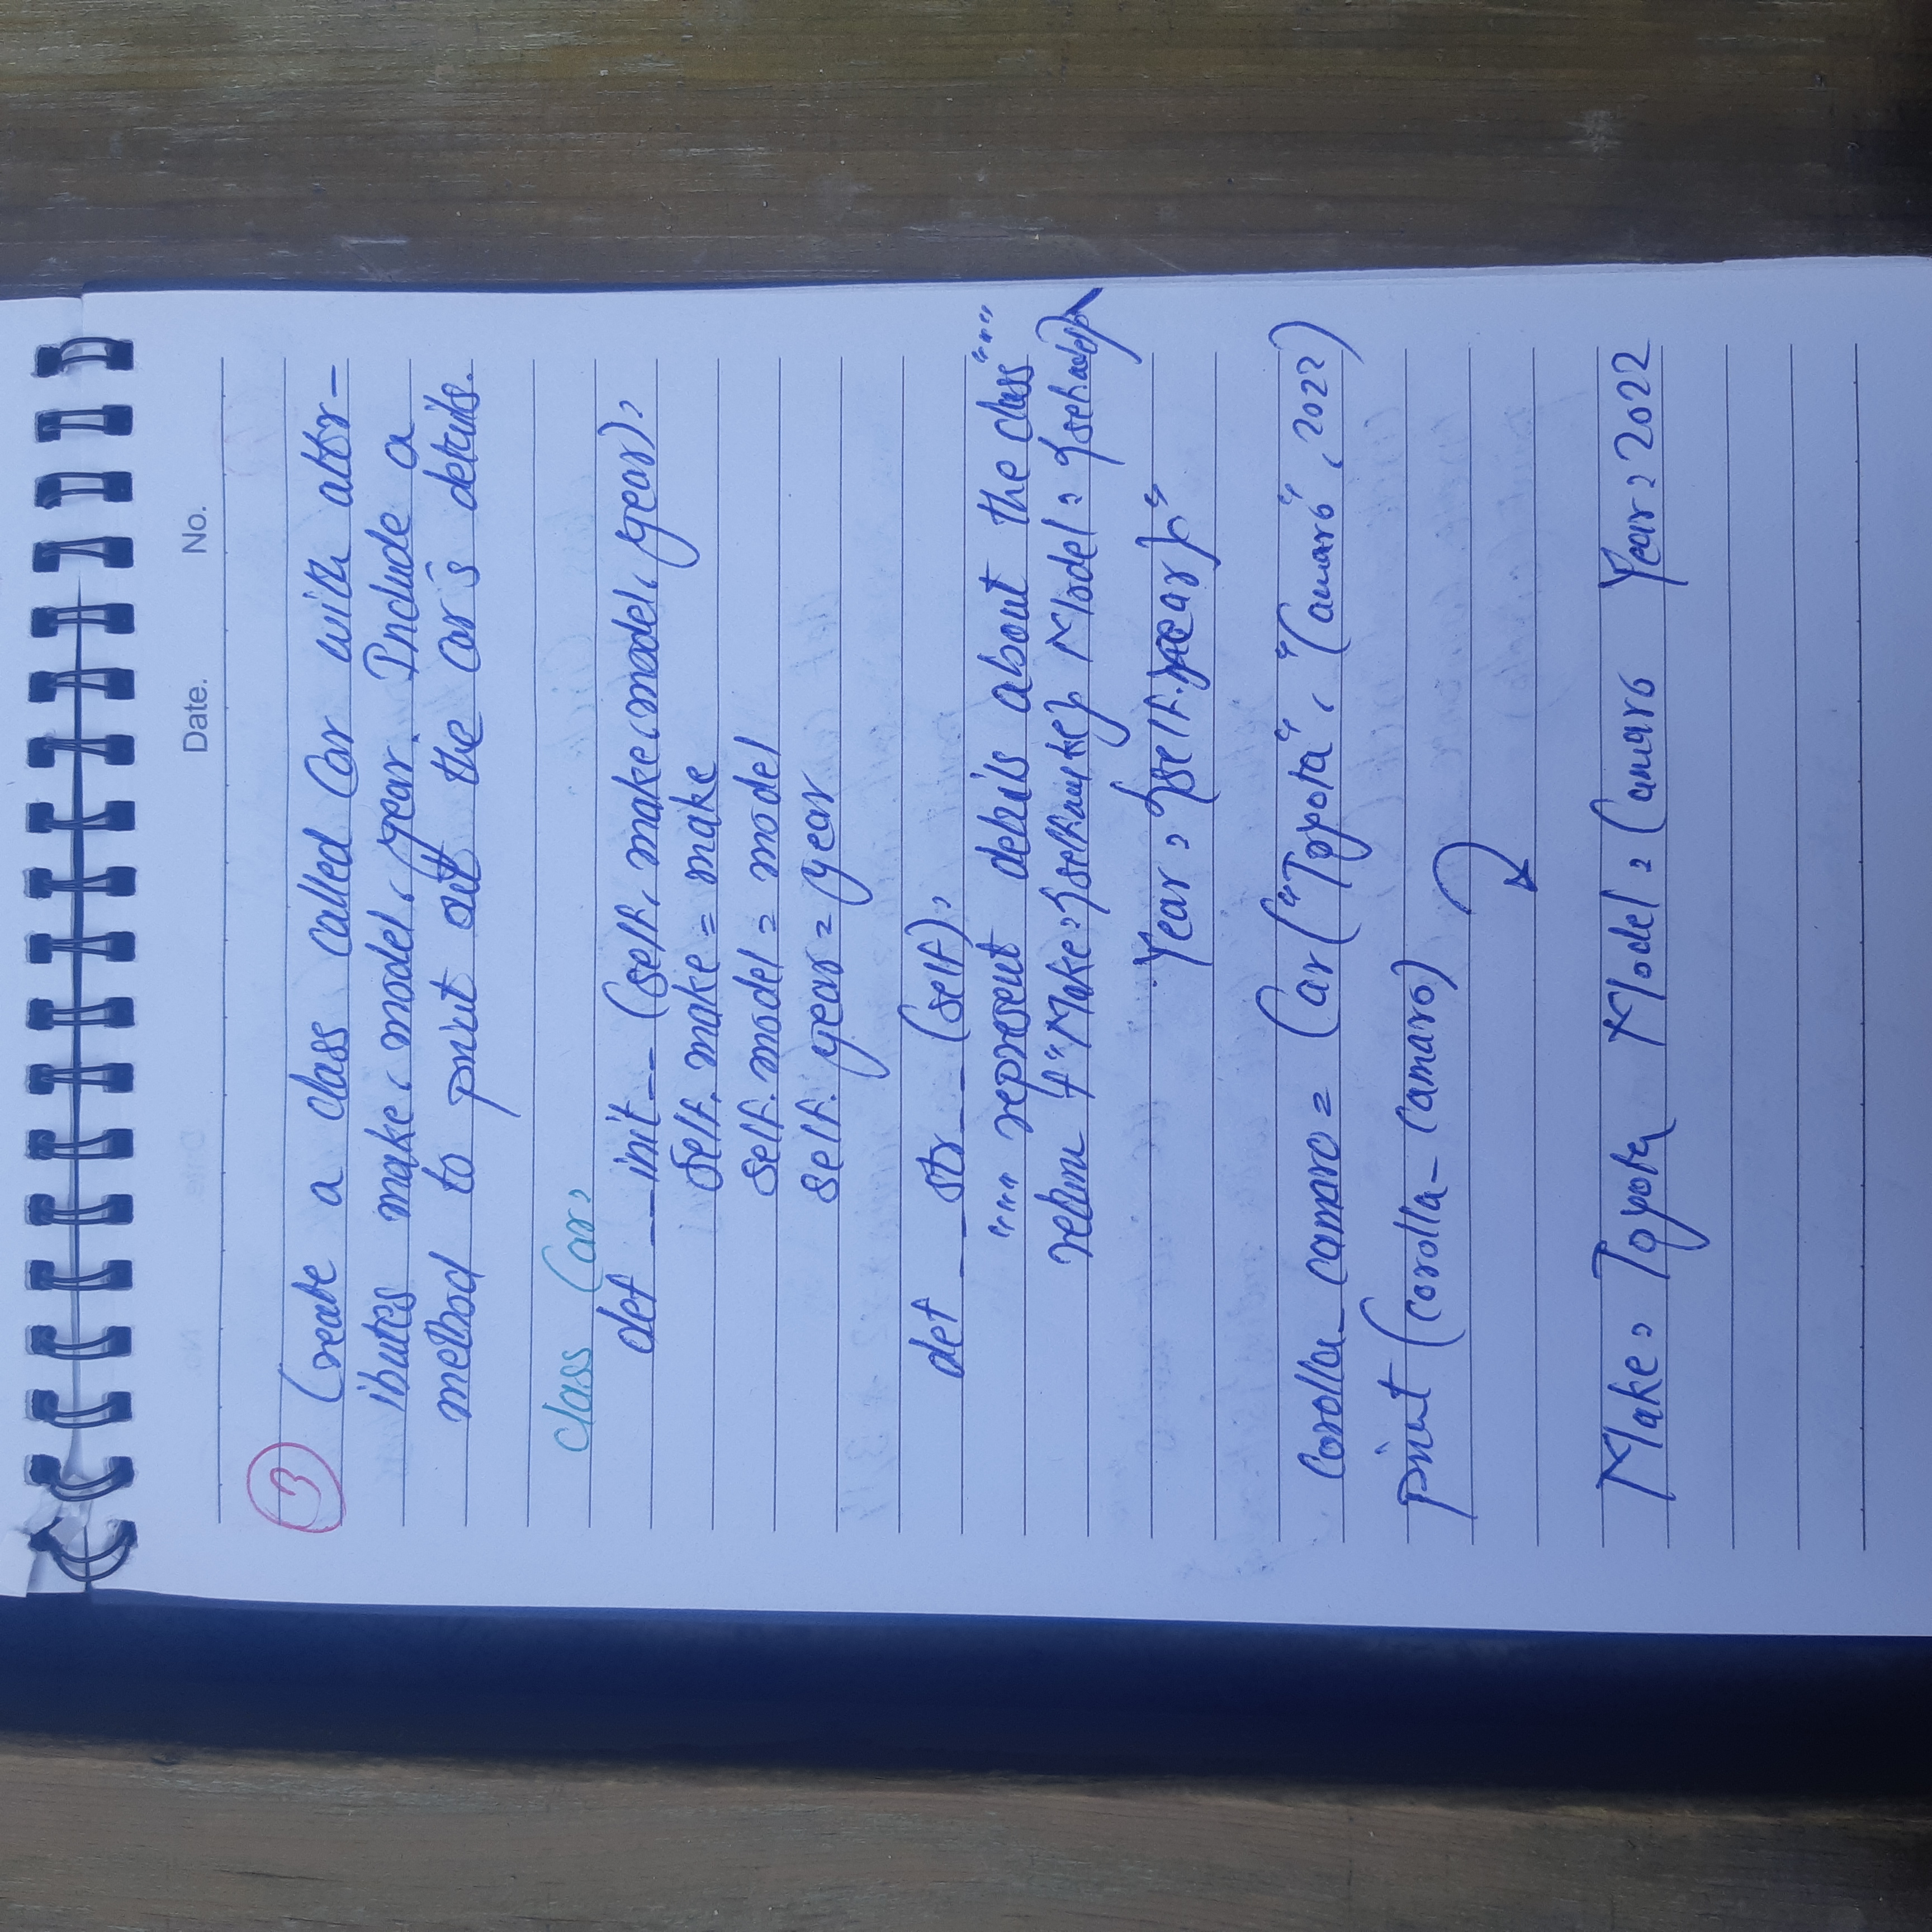 Date. No.
3
Create a class called Car with attr-
ibutes make, model, year. Include a
method to print out the car's details.
class Car:
def __init__(self, make, model, year):
self.make = make
self.model = model
self.year = year
def __str__(self):
""" represent details about the class """
return f"Make:{self.make} Model: {self.model}\
Year: {self.year}"
corolla_camaro = Car("Toyota", "Camaro", 2022)
print(corolla_camaro)
Make: Toyota Model: Camaro Year: 2022